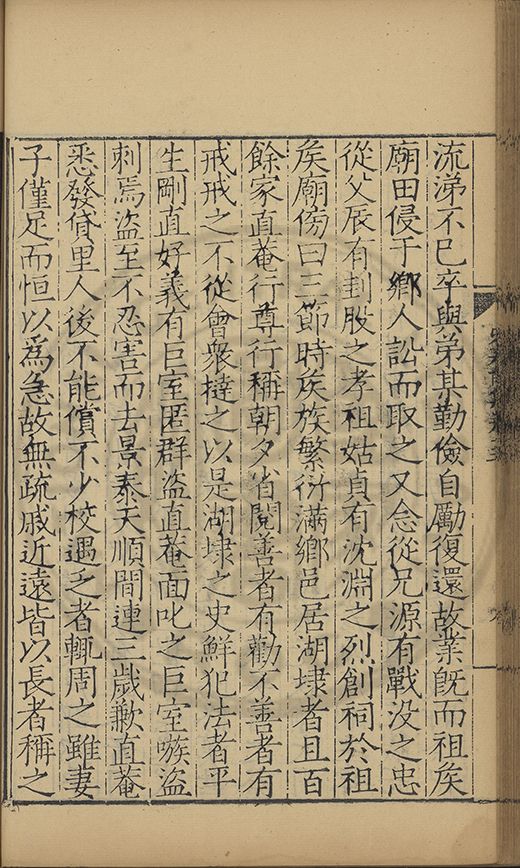 流涕不已卒與弟某勤儉自勵復還故業旣而祖矦
廟田侵于鄉人訟而取之又念從兄源有戰没之忠
從父辰有刲股之孝祖姑貞有沈淵之烈創祠於祖
矦廟傍曰三節時矦族繁衍滿鄉邑居湖埭者且百
餘家直菴行尊行稱朝夕省閲善者有勸不善者有
戒戒之不從會衆撻之以是湖埭之史鮮犯法者平
生剛直好義有巨室匿群盜直菴面叱之巨室嗾盜
刺焉盜至不忍害而去景泰天順間連三歲歉直菴
悉發貸里人後不能償不少校遇乏者輒周之雖妻
子僅足而恒以爲急故無疏戚近遠皆以長者稱之